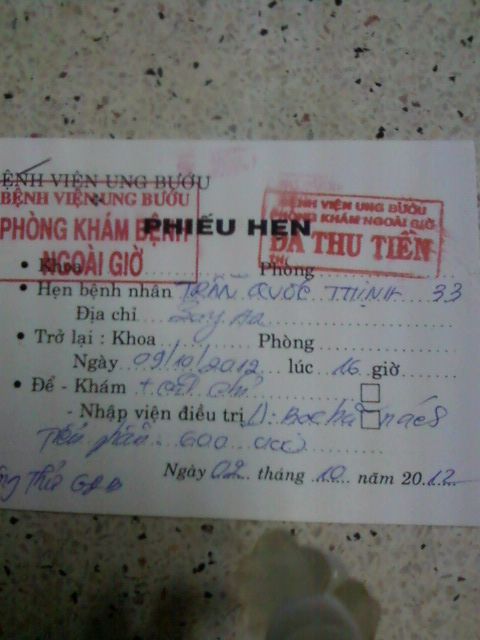 BỆNH VIỆN UNG BƯỚU
BỆNH VIỆN UNG BƯỚU
PHÒNG KHÁM BỆNH
NGOÀI GIỜ
PHIẾU HẸN
BỆNH VIỆN UNG BƯỚU
PHÒNG KHÁM NGOÀI GIỜ
ĐÃ THU TIỀN
• Khoa Phòng
• Hẹn bệnh nhân TRẦN QUỐC THỊNH 33
Địa chỉ
• Trở lại : Khoa Phòng
Ngày 09/10/2012 lúc 16 giờ
• Để - Khám + cắt chỉ
- Nhập viện điều trị
600
Ngày 02 tháng 10 năm 2012